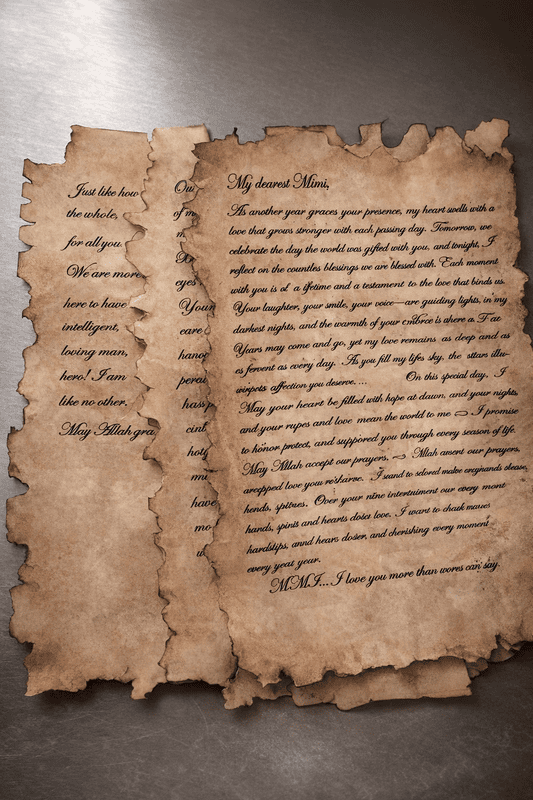 Just like how
the whole,
for all you.
We are more
here to have
intelligent,
loving man,
hero! I am
like no other.
May Allah gra
Ou
of m
m
eyes
Your
care
hano
perai
has
cinl
hol
mu
have
mo
My dearest Mimi,
As another year graces your presence, my heart swells with a
love that grows stronger with each passing day. Tomorrow, we
celebrate the day the world was gifted with you, and tonight, I
reflect on the countles blessings we are blessed with. Each moment
with you is of a lifetime and a testament to the love that binds us.
Your laughter, your smile, your voice—are guiding lights, in my
darkest nights, and the warmth of your is where a
Years may come and go, yet my love remains as deep and as
es fervent as every day. As you fill my lifes sky, the sttars illu-
affection you deserve. ... On this special day, I
May your heart be filled with hope at dawn, and your nights,
and your rupes and love mean the world to me I promise
to honor protect, and suppored you through every season of life.
May Allah accept our prayers, Allah ansent our prayers,
love you I sand to make
hends, Over your nine intertuinment our every mont
hands, spinis and hearts doses love. I want to
hardstips, annd hears doser, and cherishing every moment
every yeat year.
MMI... I love you more than wores can say.